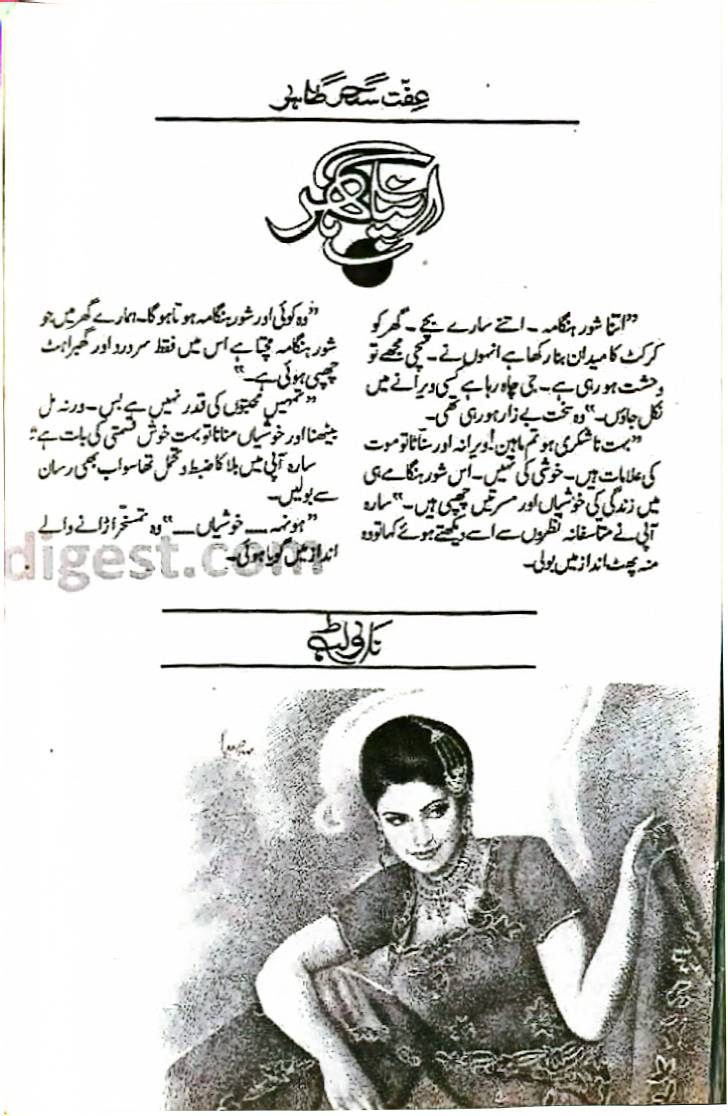 عفت سحر طاہر
اپنا گھر
”اتنا شور ہنگامہ۔ اتنے سارے بچے۔ گھر کو
کرکٹ کا میدان بنا رکھا ہے انہوں نے۔ سچی مجھے تو
وحشت ہو رہی ہے۔ جی چاہ رہا ہے کسی ویرانے میں
نکل جاؤں۔“ وہ سخت بے زار ہو رہی تھی۔
”بہت ناشکری ہو تم ماہین! ویرانہ اور سناٹا تو موت
کی علامات ہیں۔ خوشی کی نہیں۔ اس شور ہنگامے ہی
میں زندگی کی خوشیاں اور مسرتیں چھپی ہیں۔“ سارہ
آپی نے متاسفانہ نظروں سے اسے دیکھتے ہوئے کہا تو وہ
منہ پھٹ انداز میں بولی۔
”وہ کوئی اور شور ہنگامہ ہوتا ہوگا۔ ہمارے گھر میں جو
شور ہنگامہ مچتا ہے اس میں فقط سر درد اور گھبراہٹ
چھپی ہوئی ہے۔“
”تمہیں محبتوں کی قدر نہیں ہے بس۔ ورنہ مل
بیٹھنا اور خوشیاں منانا تو بہت خوش قسمتی کی بات ہے۔“
سارہ آپی میں بلا کا ضبط و تحمل تھا سو اب بھی رسان
سے بولیں۔
”ہونہہ۔۔۔ خوشیاں۔۔۔“ وہ تمسخر اڑانے والے
انداز میں گویا ہوئی۔
digest.com
ناولٹ